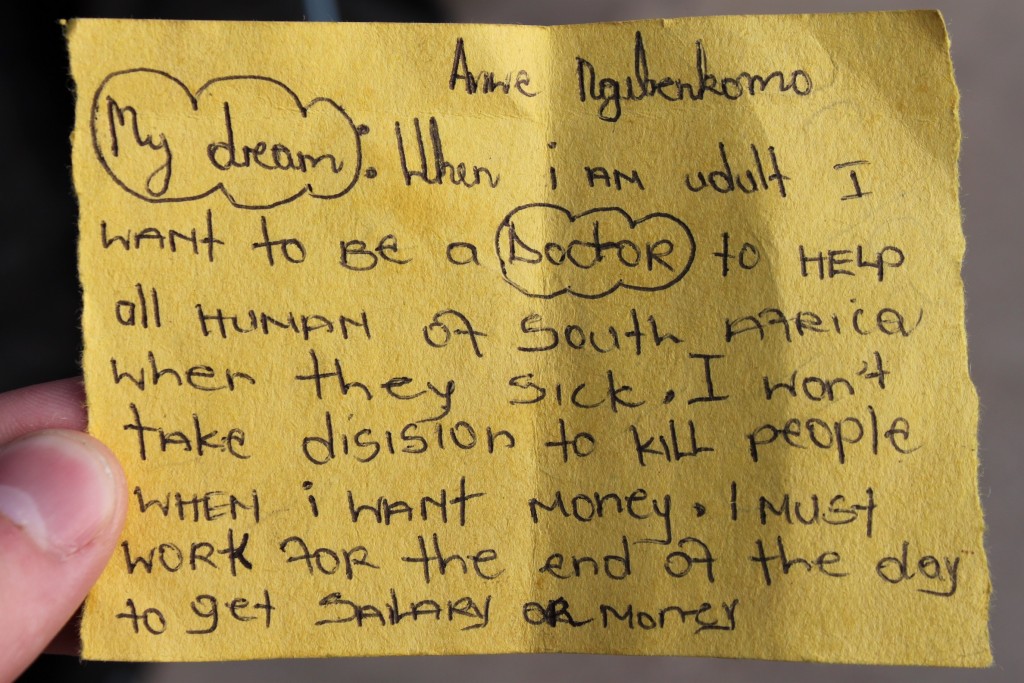 Anne Ngubenkomo
My dream: When i AM udult I
WANt to BE a DoctoR to HELP
all HUMAN of South AfRica
when they sick. I won't
take disision to kill people
WHEN i WANt Money. I MUSt
WORK foR the end of the day
to get SALARY OR Money